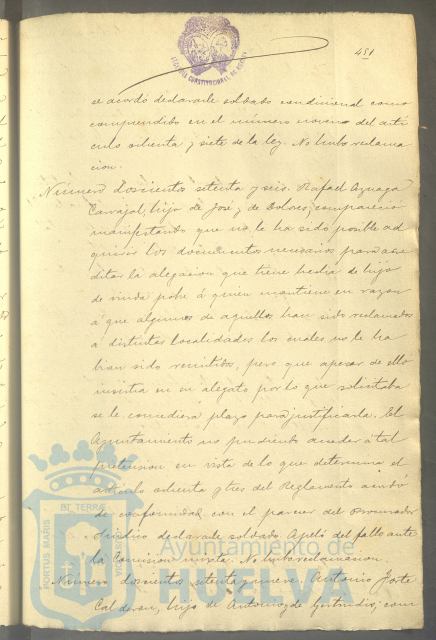 481
se acordó declararle soldado condicional como
comprendido en el número noveno del artí
culo ochenta y siete de la ley. No hubo reclama
cion.
Número doscientos setenta y seis. Rafael Azuaga
Carvajal, hijo de José y de Dolores, compareció
manifestando que no le ha sido posible ad
quirir los documentos necesarios para acre
ditar la alegacion que tiene hecha de hijo
de viuda pobre á quien mantiene en razon
á que algunos de aquellos han sido reclamados
á distintas localidades los cuales no le ha
bian sido remitidos, pero que apesar de ello
insistia en su alegato por lo que solicitaba
se le concediera plazo para justificarla. El
Ayuntamiento no pudiendo acceder á tal
pretension en vista de lo que determina el
artículo ochenta y tres del Reglamento acordó
de conformidad con el parecer del Procurador
Síndico declararle soldado. Apeló del fallo ante
la Comision mixta. No hubo reclamacion.
Número doscientos setenta y nueve. Antonio
Calderon, hijo de Antonio y de Gertrudis, com
PORTUS MARIS
ET TERRÆ
Ayuntamiento de
HUELVA